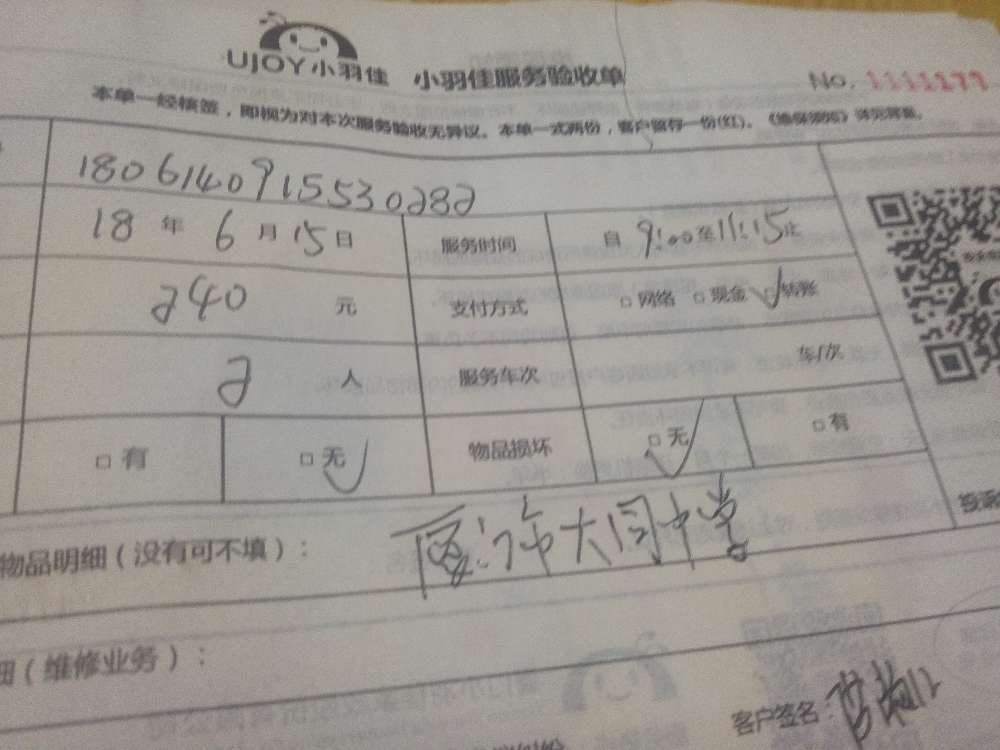 UJOY小羽佳 小羽佳服务验收单 No. 1111177
本单一经核签，即视为对本次服务验收无异议。本单一式两份，客户留存一份(红)。
18061409155530282
18 年 6 月 15 日 服务时间 自 9:00 至 11:15 止
240 元 支付方式 □ 网络 □ 现金 □ 转账
2 人 服务车次 车/次
□ 有 □ 无 物品损坏 □ 无 □ 有
物品明细（没有可不填）： 大同中学
细（维修业务）：
客户签名：